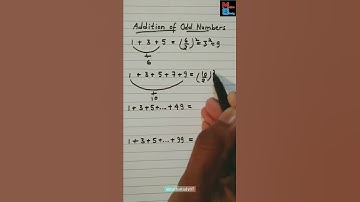 Addition of Odd Numbers
1 + 3 + 5 = (6/2)² = 3² = 9
+
6
1 + 3 + 5 + 7 + 9 = (10/2)²
+
10
1 + 3 + 5 + ... + 49 =
1 + 3 + 5 + ... + 99 =